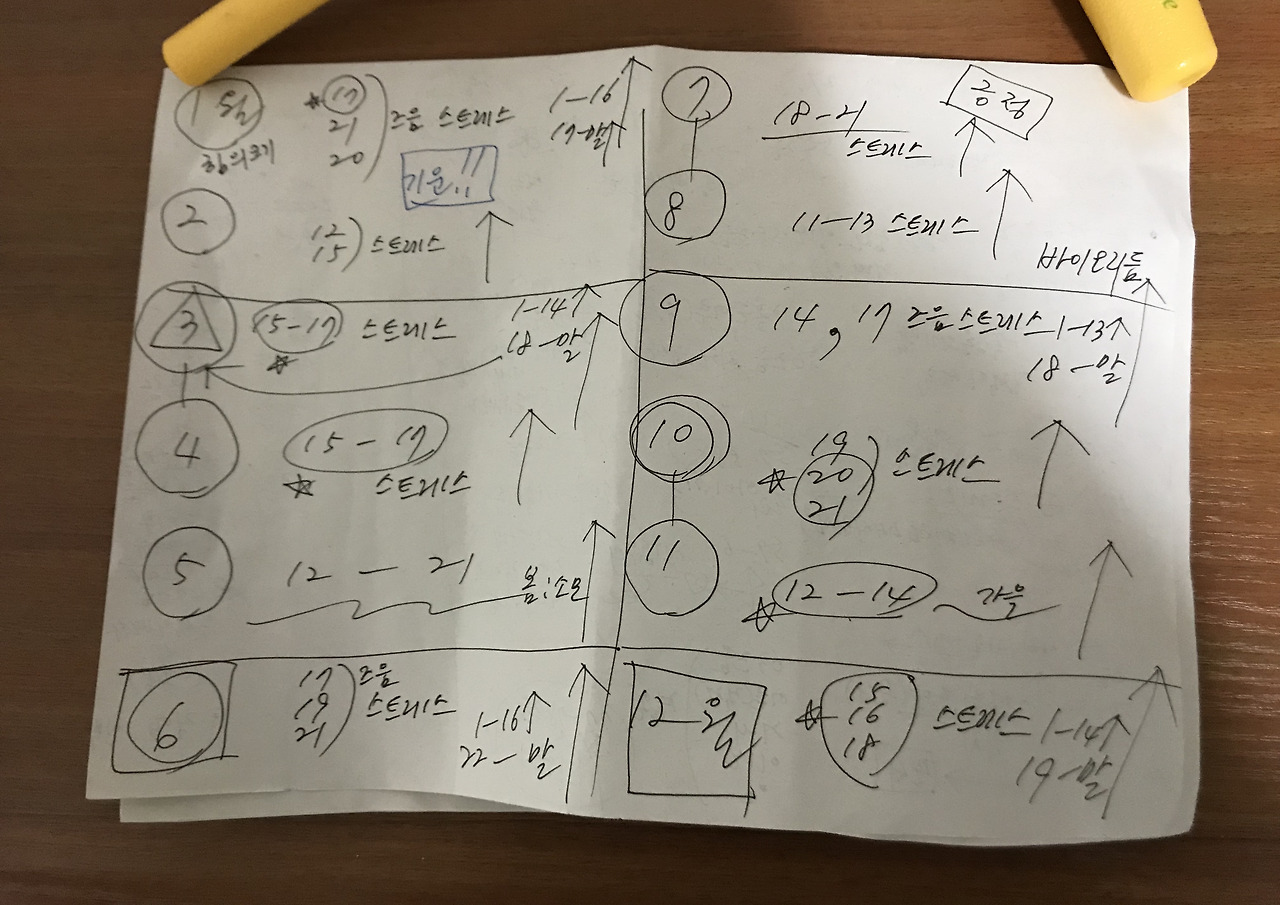 1월
17
21
20
즈음 스트레스
1-16
17-말
기운!!
2
12
15) 스트레스
3
15-17 스트레스
1-14
18-말
4
15-17
스트레스
5
12-21
봄:소모
6
17
19
21
즈음
스트레스
1-16
22-말
7
18-21
스트레스
긍정
8
11-13 스트레스
바이오리듬
9
14, 17 즈음 스트레스 1-13
18-말
10
19
20
21
스트레스
11
12-14 가을
12월
15
16
18
스트레스 1-14
19-말